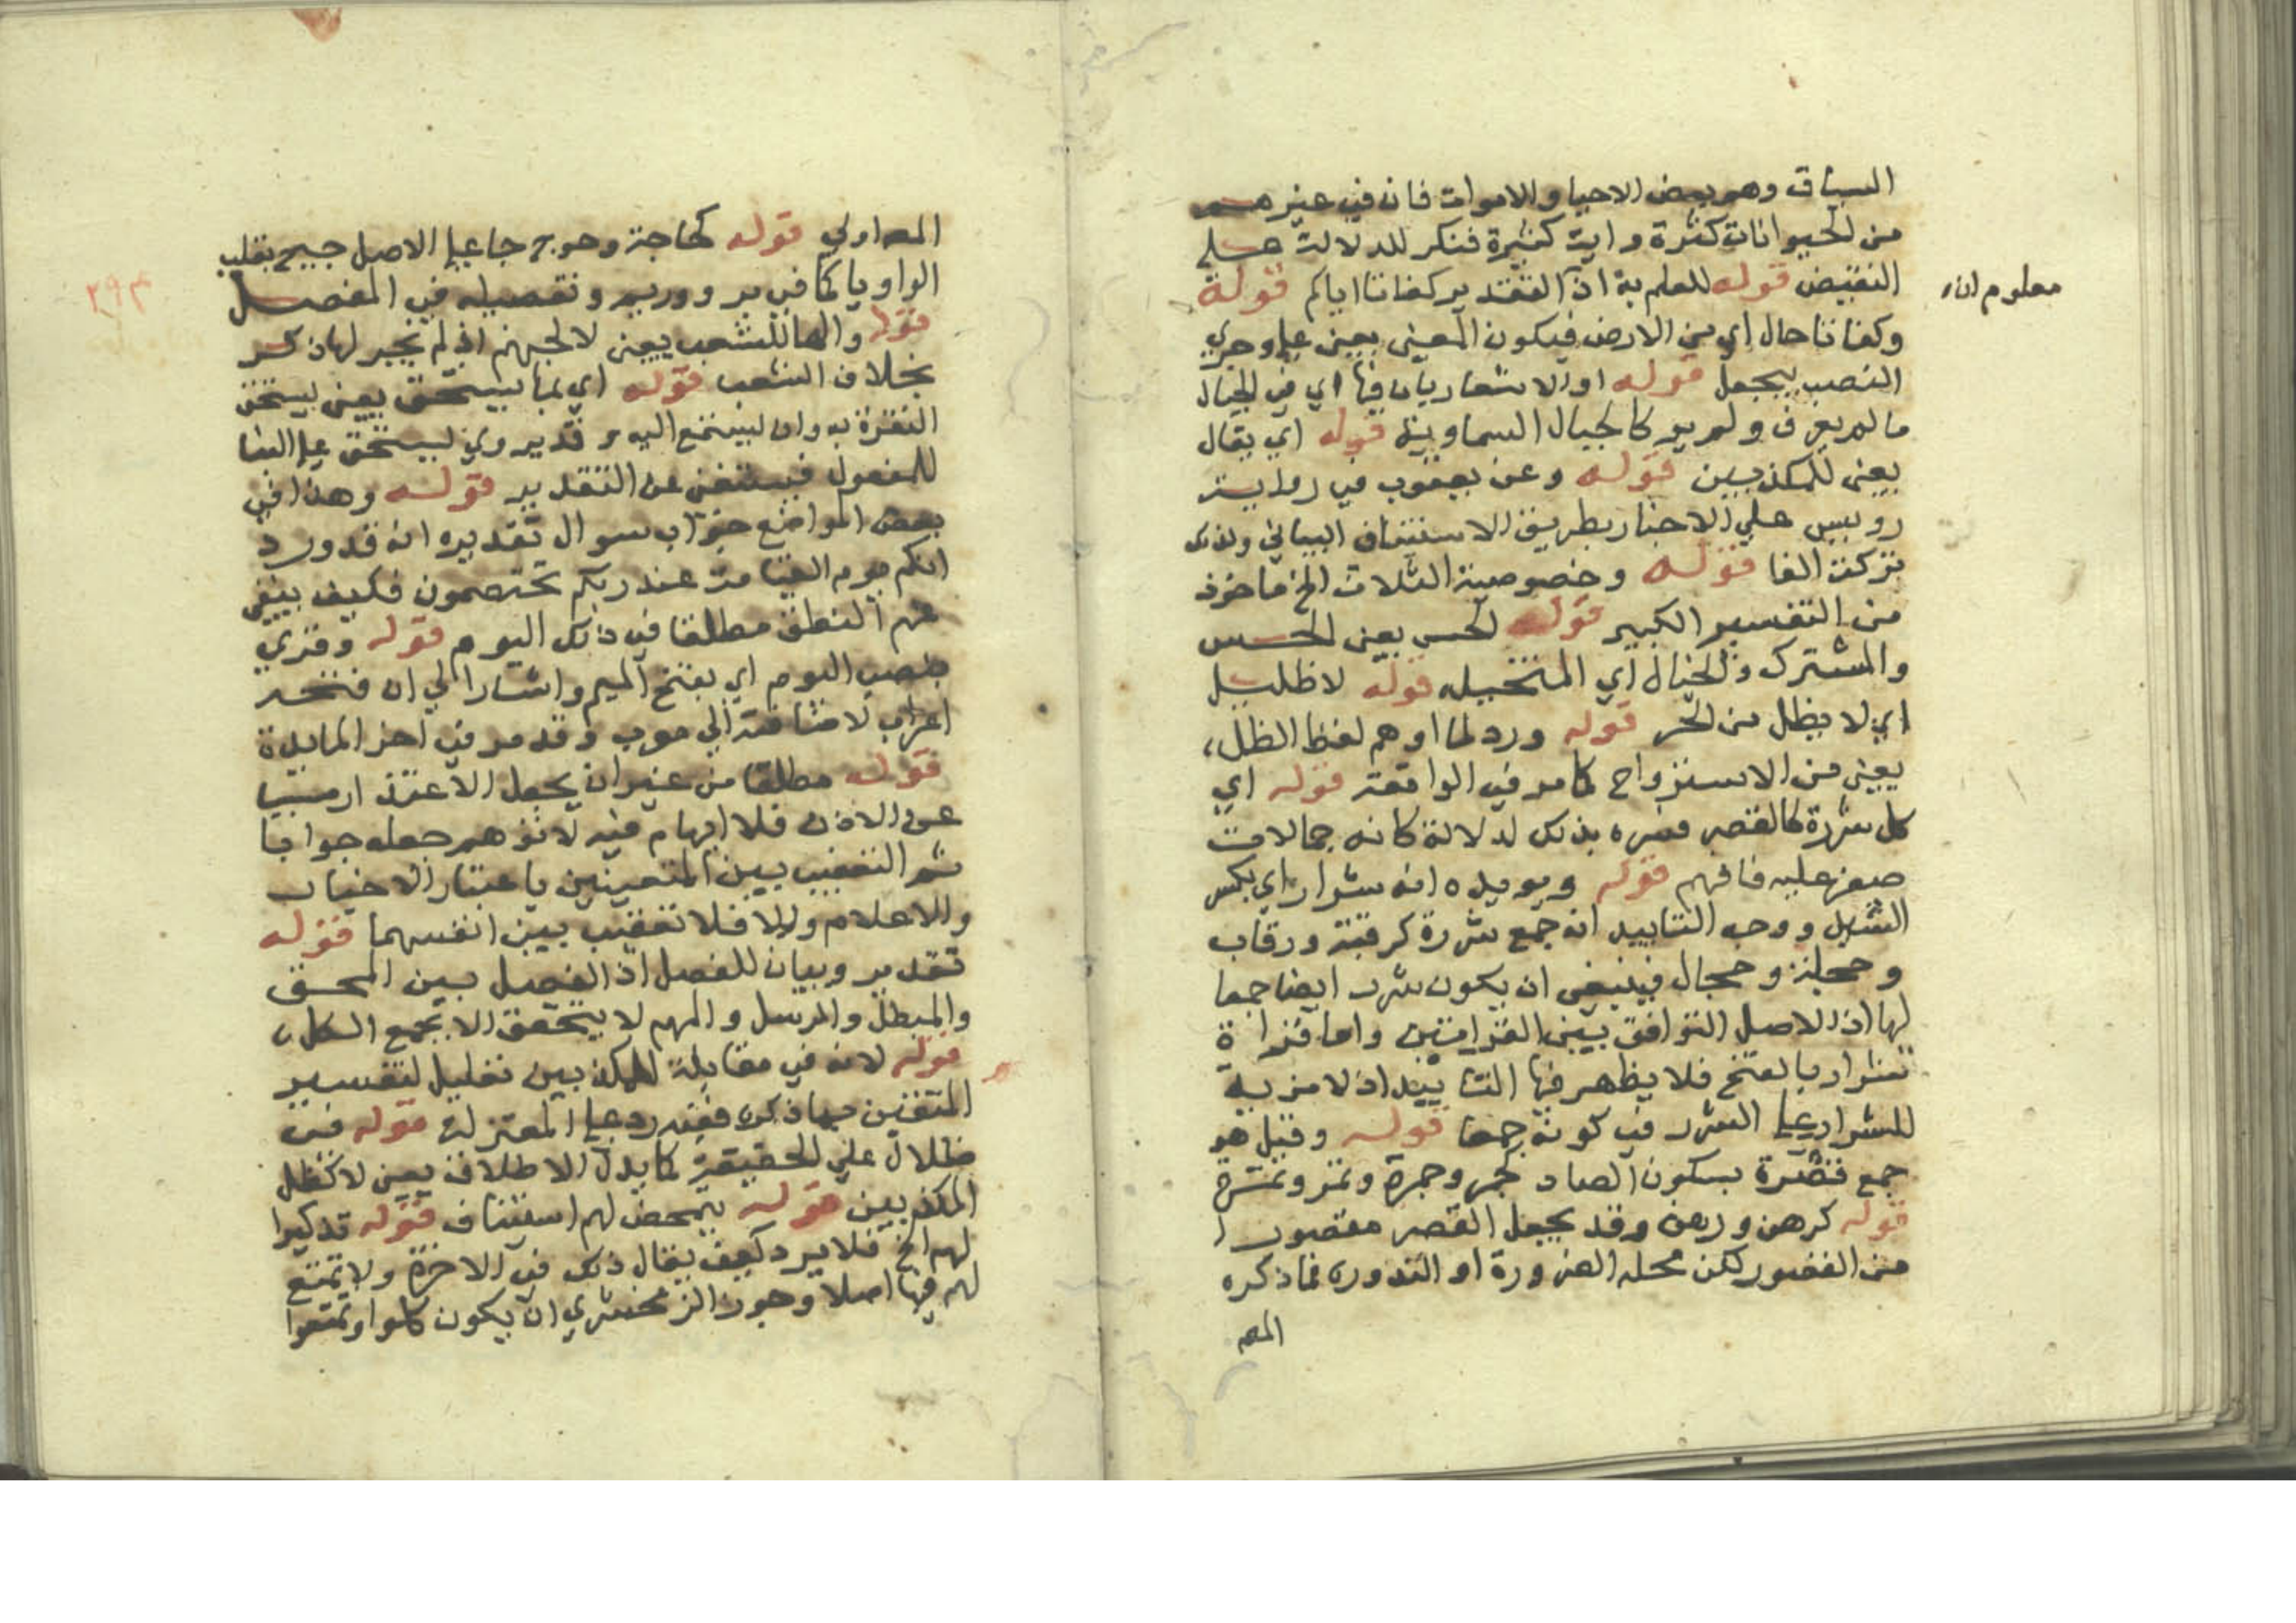 السياق وهو بعض الاحيا والاموات فان في غيرهم
من الحيوانات كثرة واية كثيرة فنكر للدلالة على
التبعيض قوله للعلم به اذ التقدير كفاتا اياكم قوله
معلوم ان
وكفاتا حال اي من الارض فيكون المعنى بعين على وجري
النصب بيجعل قوله او الاشعار بان فيها اي في الجبال
ما لم يعرف ولم ير كالجبال السماوية قوله اي يقال
يعني للمكذبين قوله وعن يعقوب في رواية
رويس على الاخبار بطريق الاستيناف البياني ولذلك
تركت الفا قوله وخصوصية الثلاث الخ ماخوذ
من التفسير الكبير قوله الحس يعني الحس
والمشترك والخيال اي المتخيله قوله لا ظليل
اي لا يظل من الحر قوله ورد لما اوهم لفظ الظل
يعني من الاسترواح كما مر في الواقعة قوله اي
كل شررة كالقصر فسره بذلك لدلالة كانه جمالات
صفر عليه فافهم قوله ويويده انه شرار اي بكسر
الشين ووجه التاييد انه جمع شررة كرقبة ورقاب
وعجلة وعجال فينبغي ان يكون شرر ايضا جمعا
لها اذ الاصل التوافق بين القراءتين واما قراة
شرار بالفتح فلا يظهر فيها التاييد اذ لا مزية
للشرار على الشرر في كونه جمعا قوله وقيل هو
جمع قصرة بسكون الصاد كجمر وجمرة وتمر وتمرة
قوله كرهن ورهن وقد يجعل القصر مقصورا
من القصور لكن محله الضرورة او الندور فما ذكره
المص
المص اولى قوله كحاجة وحوج جا على الاصل جيح بقلب
الواو يا كما في ير ووريم وتفصيله في المفصل
قوله والها للشعب يعني لا لجهنم اذ لم يجر لها ذكر
بخلاف الشعب قوله اي بما يستحق يعني ليستحق
التفزة به وان ليستمع اليه وقد يروي ليستحق على البنا
للمفعول فيستغنى عن التقدير قوله وهذا في
بعض المواضع جواب سوال تقديره انه قد ورد
انكم يوم القيامة عند ربكم تختصمون فكيف ينفي
عنهم النطق مطلقا في ذلك اليوم قوله وقري
بنصب اليوم اي بفتح الميم واشارالي ان فتحه
اعراب لاضافته الي معرب وقد مر في اخر المايدة
قوله مطلقا من غير ان يجعل الاعتذار مسببا
عن الاذن فلا ايهام فيه لا توهم جعله جوابا
ثم التعقيب بين المنفيين باعتبار الاخبار
والاعلام والا فلا تعقيب بين انفسهما قوله
تقدير وبيان للفصل اذ الفصل بين المحق
والمبطل والمرسل والمهم لا يتحقق الا بجمع الكل
قوله لانه في مقابلة المكذبين تعليل لتفسير
المتقين بما ذكره ففيه رد على المعتزلة قوله في
ظلال على الحقيقة كما يدل الاطلاق يعني لا كظل
المكذبين قوله يتمحض لهم استيناف قوله تذكيرا
لهم الخ فلا يرد كيف يقال ذلك في الاخرة ولا تمتع
لهم فيها اصلا وجوز الزمخشري ان يكون كلوا وتمتعوا